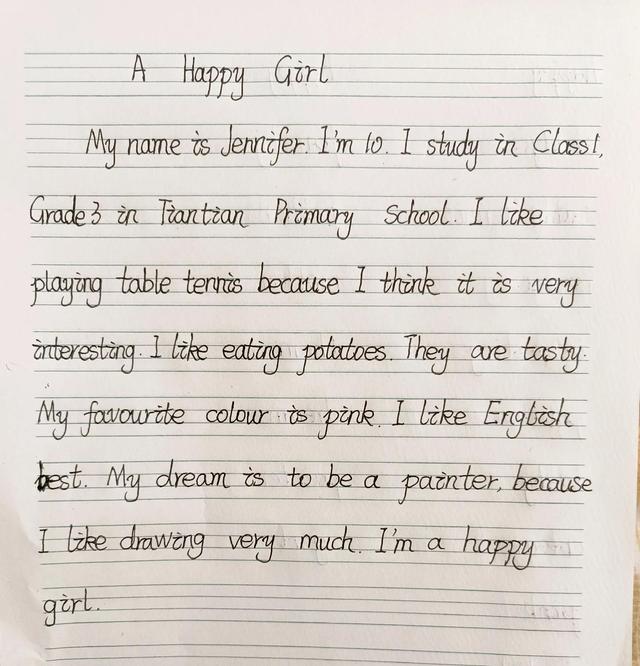 A Happy Girl
My name is Jennifer. I'm 10. I study in Class 1,
Grade 3 in Tiantian Primary School. I like
playing table tennis because I think it is very
interesting. I like eating potatoes. They are tasty.
My favourite colour is pink. I like English
best. My dream is to be a painter, because
I like drawing very much. I'm a happy
girl.